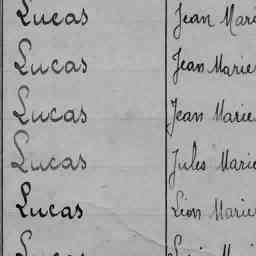 Lucas Jean Mari
Lucas Jean Marie
Lucas Jean Marie
Lucas Jules Marie
Lucas Léon Marie
Lucas